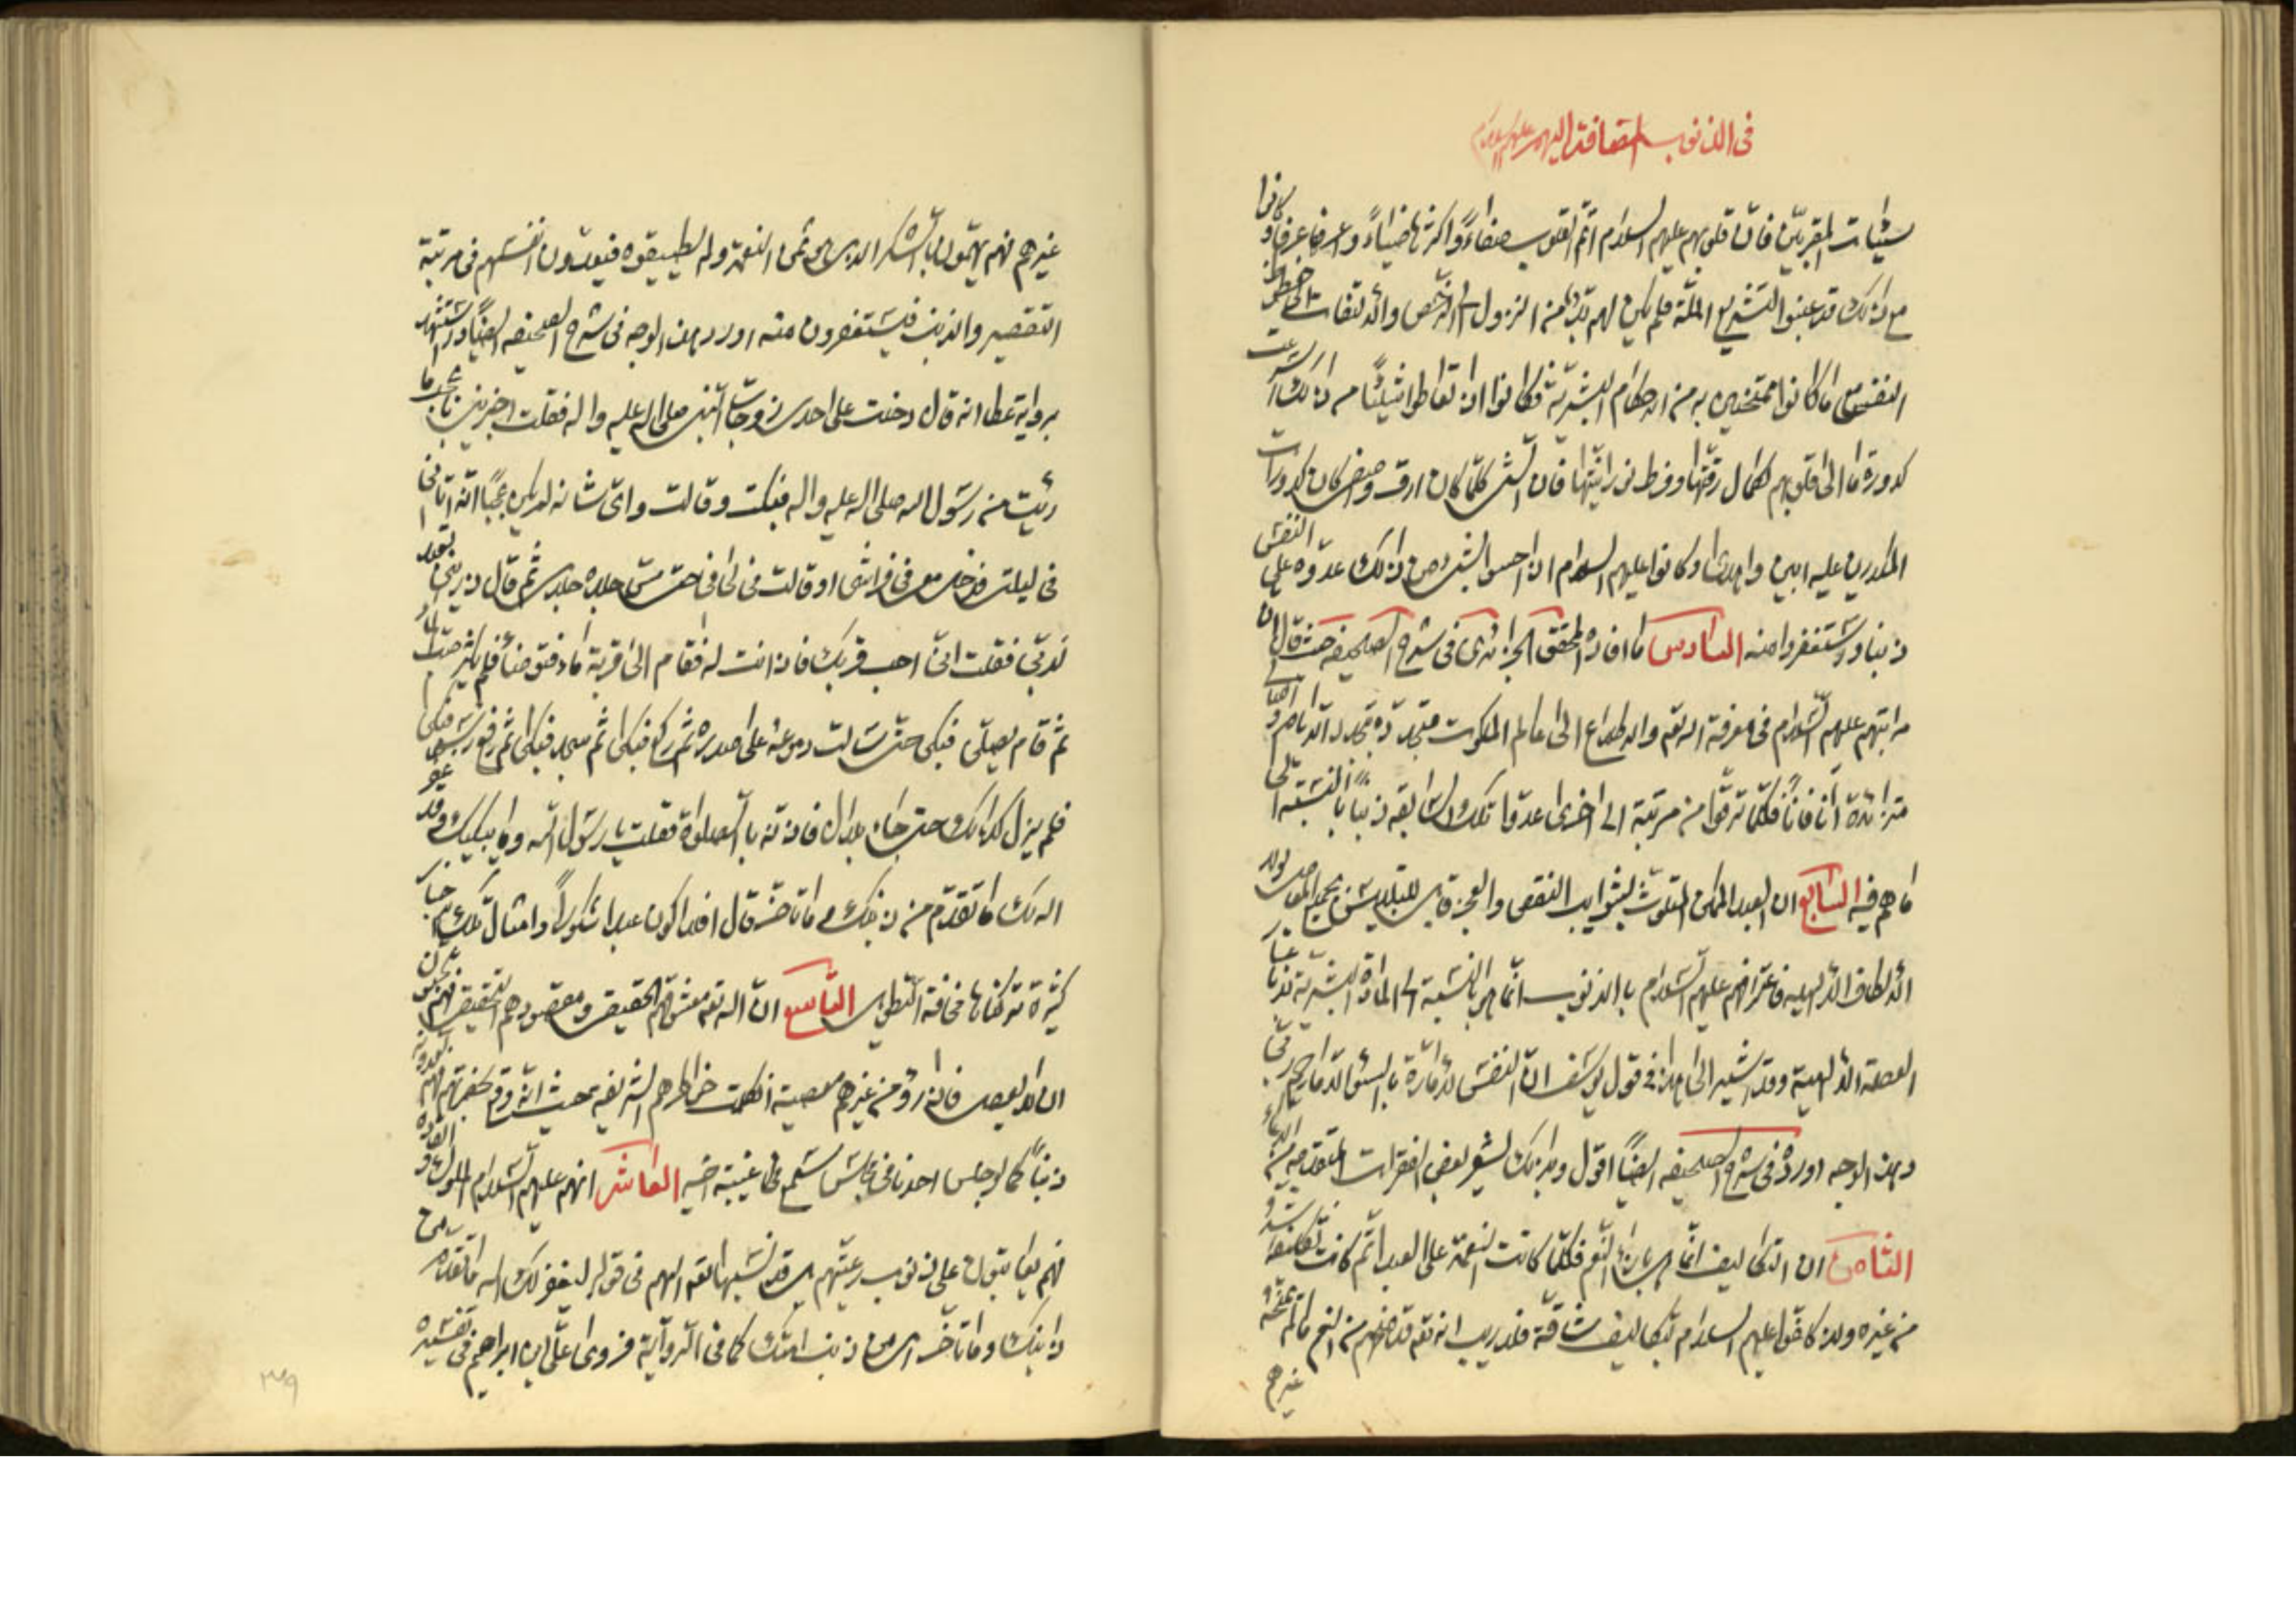 في الذنوب المضافة اليهم عليهم السلام
سيئات المقربين فان قلوبهم عليهم السلام اتم القلوب صفاءً واكثرها ضياءً واعرفها عرفانا وكانوا
مع ذلك قد عينوا لتشريع الملة فلم يكن لهم بد من النزول الى الرخص والالتفات الى حظوظ
النفس مع ما كانوا ممتحنين به من الاحكام البشرية فكانوا اذا تعاطوا شيئا من ذلك اسرعت
كدورة ما الى قلوبهم لكمال رقتها وفرط نورانيتها فان الشيء كلما كان ارق واصفى كان كدورات
المكدرين عليه ابين واهدى وكانوا عليهم السلام اذا احسوا بشيء من ذلك عدوه على النفس
ذنبا واستغفروا منه السادس ما افاده المحقق الجزائري في شرح الصحيفة حيث قال ان
مراتبهم عليهم السلام في معرفة الله تعه والاطلاع الى عالم الملكوت متجددة بتجدد الايام و
متزائدة انا فانا فكلما ترقوا من مرتبة الى اخرى عدوا تلك السابقة ذنبا بالنسبة الى
ما هم فيه السابع ان العبد الممكن المتلوث بشوايب النقص والعجز قابل
الالطاف الالهية فاعترافهم عليهم السلام بالذنوب انما هي بالنسبة الى المادة البشرية
العصمة الالهية وقد اشير الى هذا في قول يوسف ان النفس لامارة بالسوء الا ما رحم ربي
وهذا الوجه اورده في شرح الصحيفة ايضا اقول وبذلك يشعر بعض الفقرات المتقدمة من الدعاء
الثامن ان التكاليف انما هي بازاء النعم فكلما كانت النعمة على العبد اتم كانت تكليفه اشد و
من غيره ولذا كلفوا عليهم السلام بتكاليف شاقة فلا ريب انه تعه قد منحهم من النعم ما لم يمنحه
غيرهم
غيرهم فهم يهمون بالشكر الذي هو ثمن النعمة ولم يطيقوه فيعدون انفسهم في مرتبة
التقصير والذنب فيستغفرون منه اورد هذا الوجه في شرح الصحيفة ايضا واستشهد
برواية عطا انه قال دخلت على احدى زوجات النبي صلى الله عليه واله فقلت اخبريني باعجب ما
رئيت من رسول الله صلى الله عليه واله فبكت وقالت واي شانه لم يكن عجبا انه اتاني
في ليلتي فدخل معي في فراشي او قالت في لحافي حتى مس جلده جلدي ثم قال ذريني اتعبد
لربي فقلت اني احب قربك فاذنت له فقام الى قربة ماء فتوضأ فلم يكثر صب الماء
ثم قام يصلي فبكى حتى سالت دموعه على صدره ثم ركع فبكى ثم سجد فبكى ثم رفع راسه فبكى
فلم يزل كذلك حتى جاء بلال فاذنه بالصلوة فقلت يا رسول الله وما يبكيك وقد غفر
الله لك ما تقدم من ذنبك وما تاخر قال افلا اكون عبدا شكورا وامثال تلك الاخبار
كثيرة تركناها مخافة التطويل التاسع ان الله تعه معشوقهم الحقيقي ومقصودهم التحقيقي فهم يحبون
ان لا يعصى فاذا رؤا من غيرهم معصية انكسرت خواطرهم الشريفة بحيث انه وقع بحضرتهم فهم يعدونه
ذنبا كما لو جلس احدنا في مجلس يسمع فيه غيبة اخيه العاشر انهم عليهم السلام الملوك والقادة
فهم يعاتبون على ذنوب رعيتهم بل قد نسبها الله تعه اليهم في قوله ليغفر لك الله ما تقدم من
ذنبك وما تاخر اي من ذنب امتك كما في الرواية فروى علي بن ابراهيم في تفسيره
٣٤٩